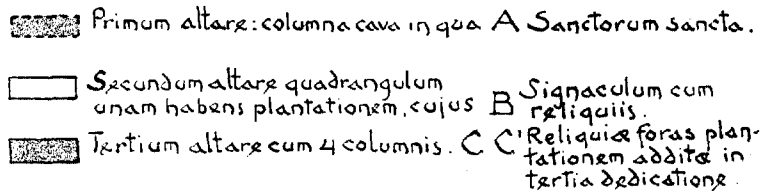 Primum altare: columna cava in qua A Sanctorum sancta.
Secundum altare quadrangulum
unam habens plantationem, cujus B Signaculum cum
reliquiis.
Tertium altare cum 4 columnis. C C' Reliquiæ foras plan-
tationem additæ in
tertia dedicatione.